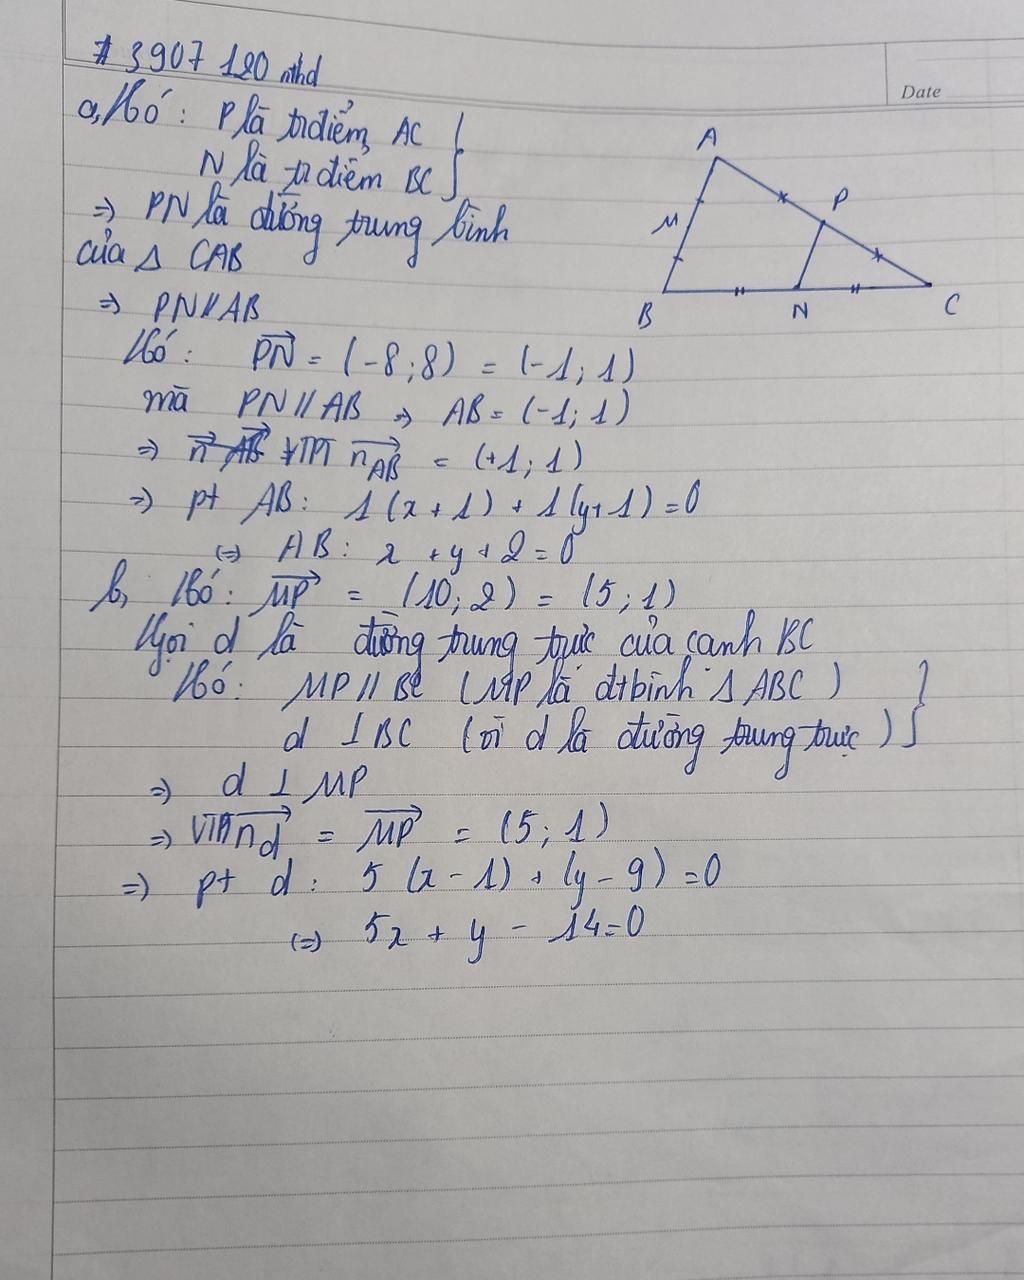 # 3907 120 nthd
Date
a, Có : P là trđiểm AC
N là trđiểm BC
⇒ PN là đường trung bình
của Δ CAB
⇒ PN // AB
Có : PN = (-8 ; 8) = (-1 ; 1)
mà PN // AB ⇒ AB = (-1 ; 1)
⇒ VTPT n AB = (+1 ; 1)
⇒ pt AB : 1 (x + 1) + 1 (y + 1) = 0
⇔ AB : x + y + 2 = 0
b, Có : MP = (10 ; 2) = (5 ; 1)
Gọi d là đường trung trực của cạnh BC
Có : MP // BC (MP là đtbình Δ ABC)
d ⊥ BC (vì d là đường trung trực)
⇒ d ⊥ MP
⇒ VTPT n d = MP = (5 ; 1)
⇒ pt d : 5 (x - 1) + (y - 9) = 0
⇔ 5x + y - 14 = 0
A
P
M
B
N
C